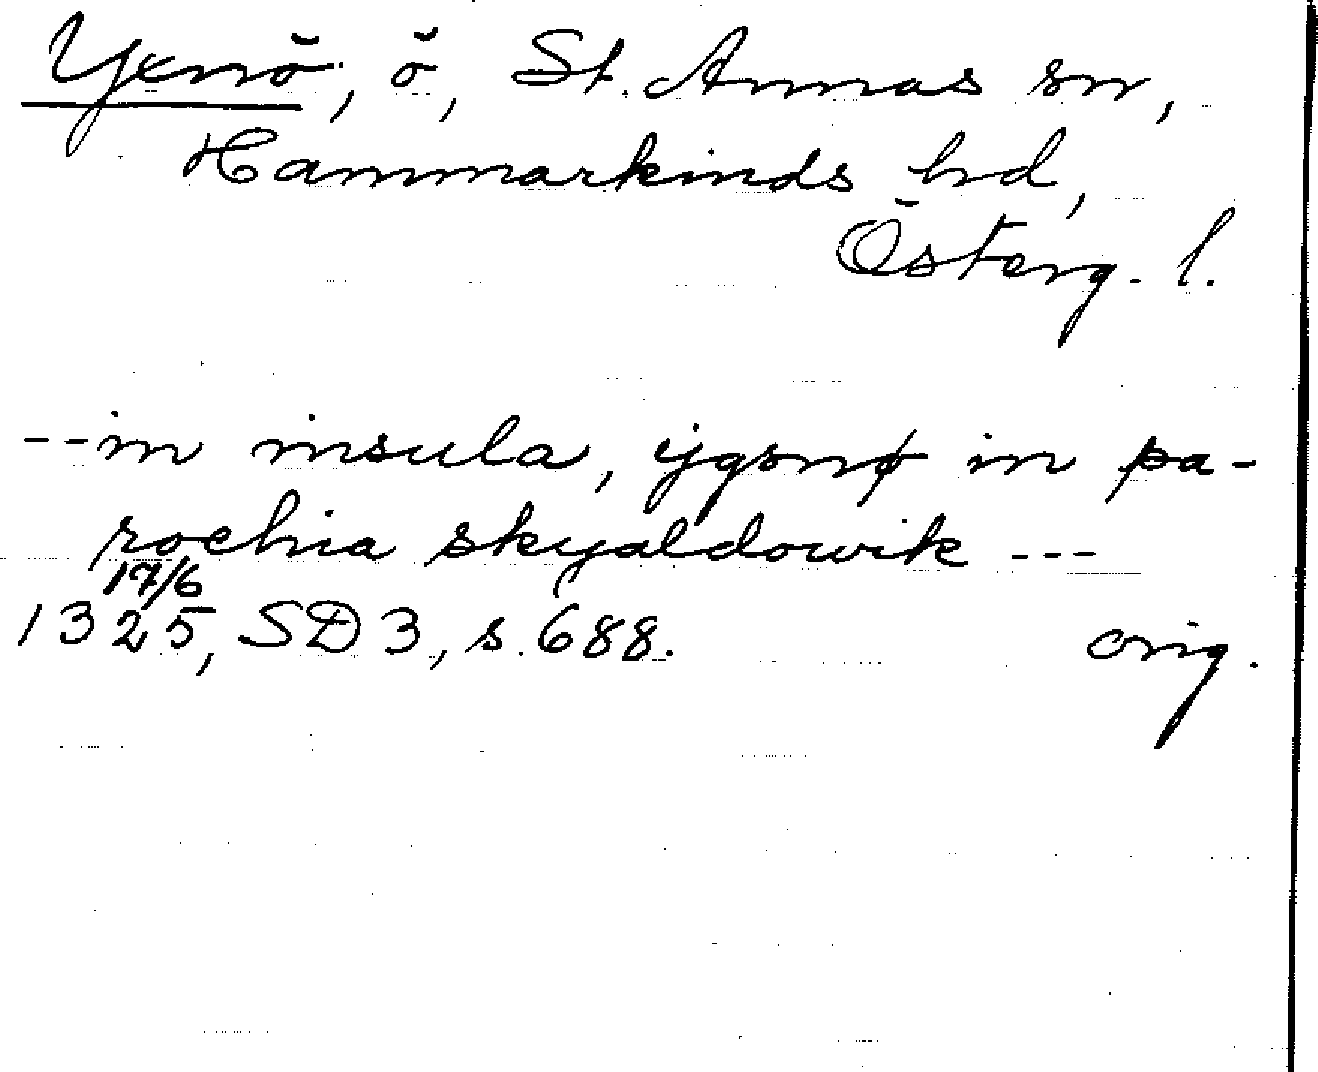 Yxnö, ö, St. Annas sn,
Hammarkinds hd,
Österg. l.
--in insula, ÿgsnø in pa-
rochia skyaldowik ---
17/6
1325, SD 3, s. 688. orig.